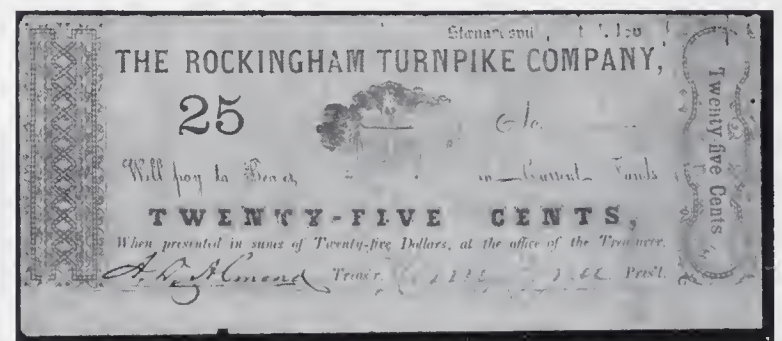 THE ROCKINGHAM TURNPIKE COMPANY,
25
Will pay to Bearer in Current Funds
TWENTY-FIVE CENTS,
When presented in sums of Twenty-five Dollars, at the office of the Treasurer.
A. D. Almond Treas'r, Pres't.
Twenty five Cents